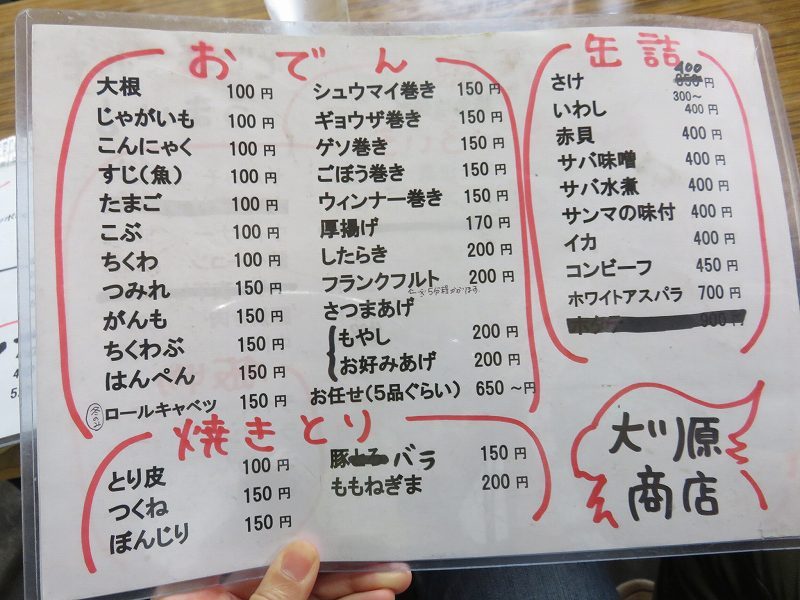 おでん
大根 100円
じゃがいも 100円
こんにゃく 100円
すじ(魚) 100円
たまご 100円
こぶ 100円
ちくわ 100円
つみれ 150円
がんも 150円
ちくわぶ 150円
はんぺん 150円
冬のみ ロールキャベツ 150円
シュウマイ巻き 150円
ギョウザ巻き 150円
ゲソ巻き 150円
ごぼう巻き 150円
ウィンナー巻き 150円
厚揚げ 170円
したらき 200円
フランクフルト 200円
さつまあげ
もやし 200円
お好みあげ 200円
お任せ(5品ぐらい) 650～円
缶詰
さけ 400円
300～
いわし 400円
赤貝 400円
サバ味噌 400円
サバ水煮 400円
サンマの味付 400円
イカ 400円
コンビーフ 450円
ホワイトアスパラ 700円
焼きとり
とり皮 100円
つくね 150円
ぼんじり 150円
豚バラ 150円
ももねぎま 200円
大川原
商店